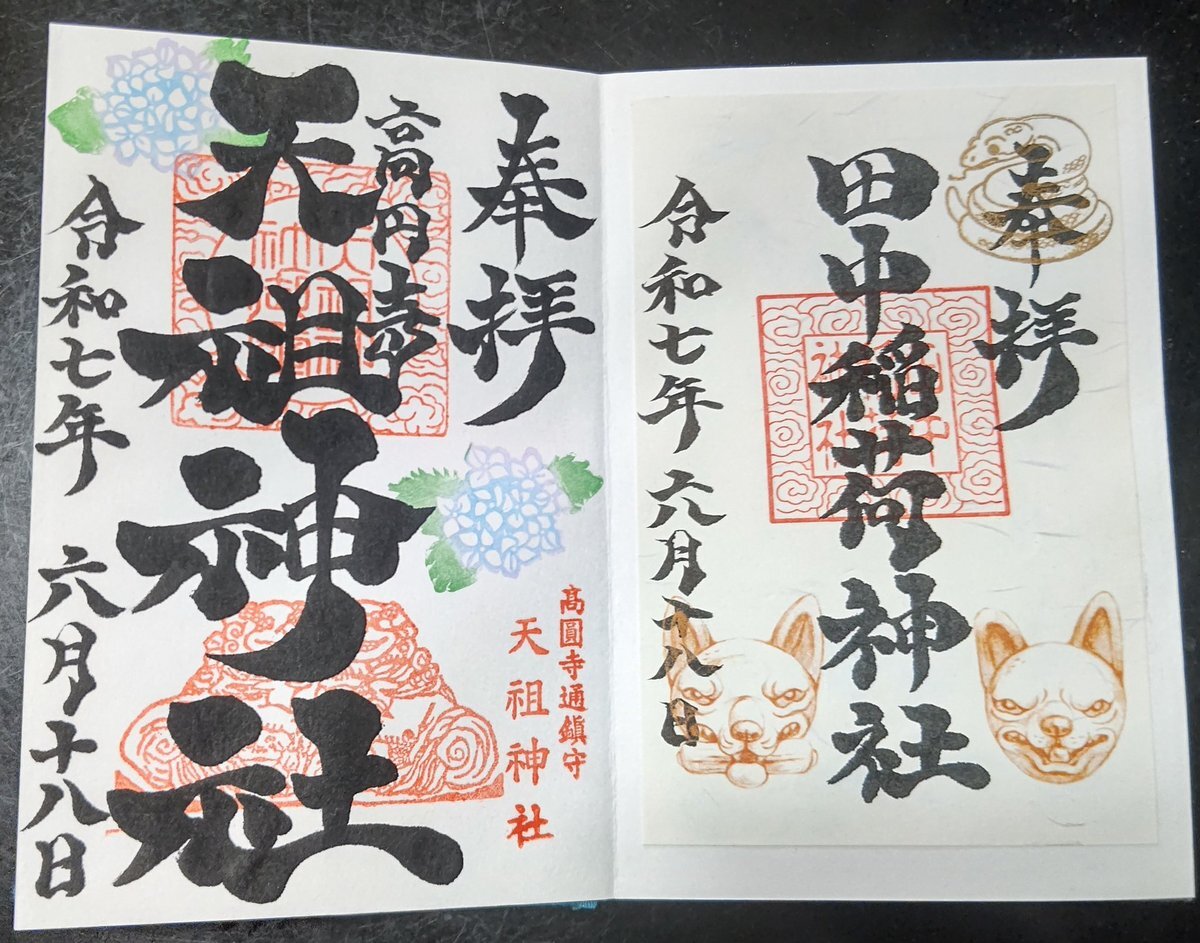 奉拝
田中稲荷神社
令和七年六月十八日
奉拝
高円寺
天祖神社
令和七年 六月十八日
髙圓寺通鎮守
天祖神社